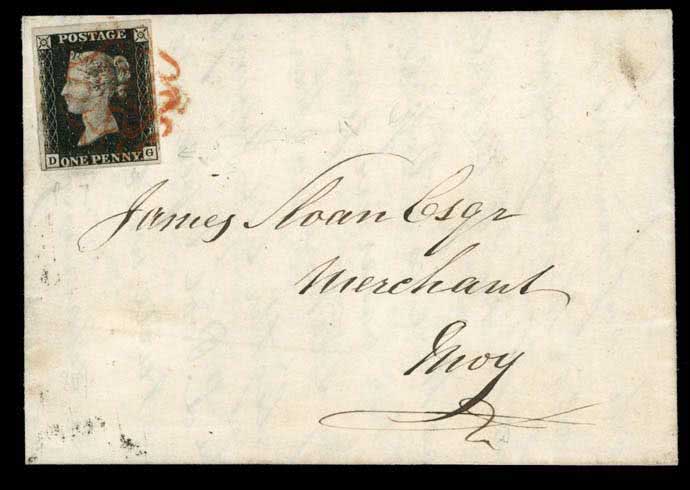 POSTAGE
D ONE PENNY G
James Sloan Esqr
Merchant
Moy